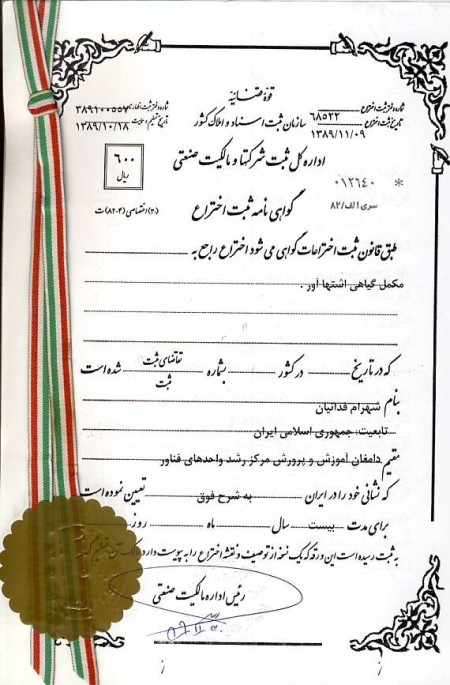 قوهٔ قضائیه
شماره دفتر ثبت اختراع ۶۸۵۲۲
تاریخ ثبت اختراع ۱۳۸۹/۱۱/۰۹
سازمان ثبت اسناد و املاک کشور
شماره دفتر ثبت اظهارنامه ۳۸۹۱۰۰۵۵۷
تاریخ تسلیم ۱۳۸۹/۱۰/۱۸
اداره کل ثبت شرکتها و مالکیت صنعتی
۶۰۰
ریال
* ۰۱۲۶۴۰
سری الف/۸۲
گواهی نامه ثبت اختراع
(۳۰) اختصاصی (۳-۸۲) ث
طبق قانون ثبت اختراعات گواهی می شود اختراع راجع به
مکمل گیاهی اشتها آور .
که در تاریخ در کشور بشماره تقاضای ثبت شده است
ثبت
بنام شهرام فدائیان
تابعیت: جمهوری اسلامی ایران
مقیم دامغان آموزش و پرورش مرکز رشد واحدهای فناور
که نشانی خود را در ایران به شرح فوق تعیین نموده است
برای مدت بیست سال ماه روز
به ثبت رسیده است این ورقه که یک نسخه از توصیف و نقشه اختراع را به پیوست دارد
رئیس اداره مالکیت صنعتی